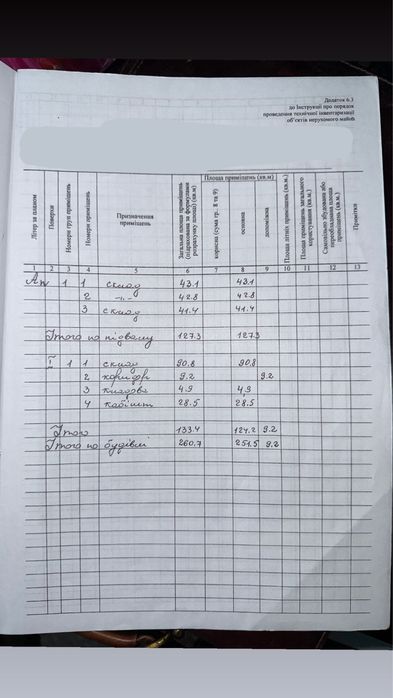 Додаток 6.3
до Інструкції про порядок
проведення технічної інвентаризації
об'єктів нерухомого майна
Літер за планом
Поверхи
Номери груп приміщень
Номери приміщень
Призначення приміщень
Загальна площа приміщень (підрахована за формулами розрахунку площ) (кв.м)
Площа приміщень (кв.м)
корисна (сума гр. 8 та 9)
основна
допоміжна
Площа літніх приміщень (кв.м.)
Площа приміщень загального користування (кв.м.)
Самовільно збудована або переобладнана площа приміщень (кв.м.)
Примітки
1 2 3 4 5 6 7 8 9 10 11 12 13
1 1 склад 43.1 43.1
2 -"- 42.8 42.8
3 склад 41.4 41.4
Ітого по підвалу 127.3 127.3
I 1 1 склад 90.8 90.8
2 коридор 9.2 9.2
3 кладова 4.9 4.9
4 кабінет 28.5 28.5
Ітого 133.4 124.2 9.2
Ітого по будівлі 260.7 251.5 9.2